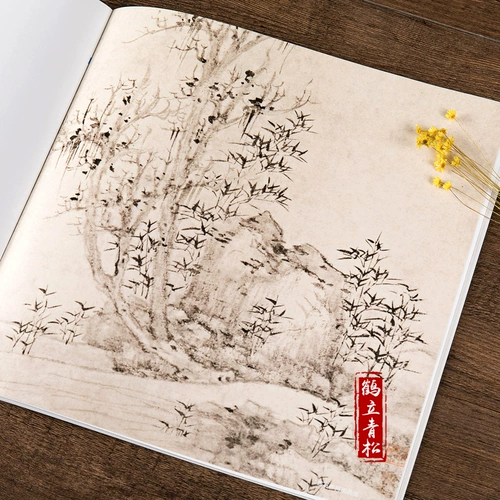 鹤立青松